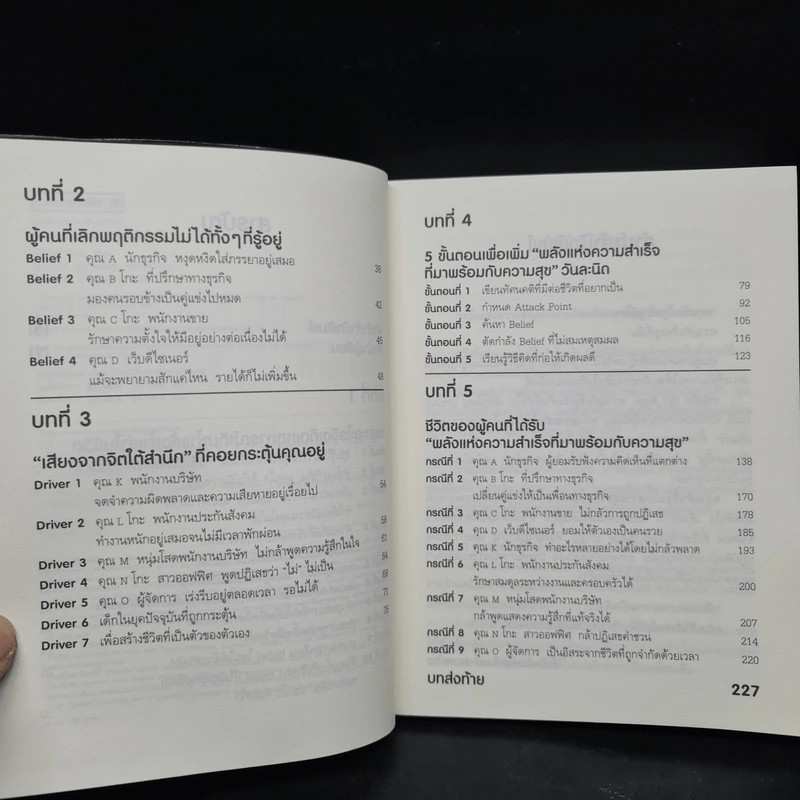 บทที่ 2
ผู้คนที่เลิกพฤติกรรมไม่ได้ทั้งๆที่รู้อยู่
Belief 1 คุณ A นักธุรกิจ หงุดหงิดใส่ภรรยาอยู่เสมอ 38
Belief 2 คุณ B โกะ ที่ปรึกษาทางธุรกิจ
มองคนรอบข้างเป็นคู่แข่งไปหมด 42
Belief 3 คุณ C โกะ พนักงานขาย
รักษาความตั้งใจให้มีอยู่อย่างต่อเนื่องไม่ได้ 45
Belief 4 คุณ D เว็บดีไซเนอร์
แม้จะพยายามสักแค่ไหน รายได้ก็ไม่เพิ่มขึ้น 48
บทที่ 3
“เสียงจากจิตใต้สำนึก” ที่คอยกระตุ้นคุณอยู่
Driver 1 คุณ K พนักงานบริษัท
จดจำความผิดพลาดและความเสียหายอยู่เรื่อยไป 54
Driver 2 คุณ L โกะ พนักงานประกันสังคม
ทำงานหนักอยู่เสมอจนไม่มีเวลาพักผ่อน 58
Driver 3 คุณ M หนุ่มโสดพนักงานบริษัท ไม่กล้าพูดความรู้สึกในใจ 61
Driver 4 คุณ N โกะ สาวออฟฟิศ พูดปฏิเสธว่า “ไม่” ไม่เป็น 64
Driver 5 คุณ O ผู้จัดการ เร่งรีบอยู่ตลอดเวลา รอไม่ได้ 68
Driver 6 เด็กในยุคปัจจุบันที่ถูกกระตุ้น
Driver 7 เพื่อสร้างชีวิตที่เป็นตัวของตัวเอง
บทที่ 4
5 ขั้นตอนเพื่อเพิ่ม “พลังแห่งความสำเร็จ
ที่มาพร้อมกับความสุข” วันละนิด
ขั้นตอนที่ 1 เขียนทัศนคติที่มีต่อชีวิตที่อยากเป็น 79
ขั้นตอนที่ 2 กำหนด Attack Point 92
ขั้นตอนที่ 3 ค้นหา Belief 105
ขั้นตอนที่ 4 ตัดกำลัง Belief ที่ไม่สมเหตุสมผล 116
ขั้นตอนที่ 5 เรียนรู้วิธีคิดที่ก่อให้เกิดผลดี 123
บทที่ 5
ชีวิตของผู้คนที่ได้รับ
“พลังแห่งความสำเร็จที่มาพร้อมกับความสุข”
กรณีที่ 1 คุณ A นักธุรกิจ ผู้ยอมรับฟังความคิดเห็นที่แตกต่าง 138
กรณีที่ 2 คุณ B โกะ ที่ปรึกษาทางธุรกิจ
เปลี่ยนคู่แข่งให้เป็นเพื่อนทางธุรกิจ 170
กรณีที่ 3 คุณ C โกะ พนักงานขาย ไม่กลัวการถูกปฏิเสธ 178
กรณีที่ 4 คุณ D เว็บดีไซเนอร์ ยอมให้ตัวเองเป็นคนรวย 185
กรณีที่ 5 คุณ K นักธุรกิจ ทำอะไรหลายอย่างได้โดยไม่กลัวพลาด 193
กรณีที่ 6 คุณ L โกะ พนักงานประกันสังคม
รักษาสมดุลระหว่างงานและครอบครัวได้ 200
กรณีที่ 7 คุณ M หนุ่มโสดพนักงานบริษัท
กล้าพูดแสดงความรู้สึกที่แท้จริงได้ 207
กรณีที่ 8 คุณ N โกะ สาวออฟฟิศ กล้าปฏิเสธคำชวน 214
กรณีที่ 9 คุณ O ผู้จัดการ เป็นอิสระจากชีวิตที่ถูกจำกัดด้วยเวลา 220
บทส่งท้าย 227